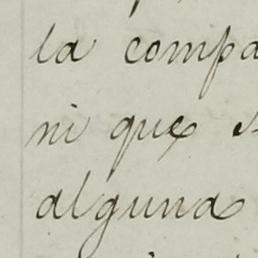 la compa
ni que s
alguna